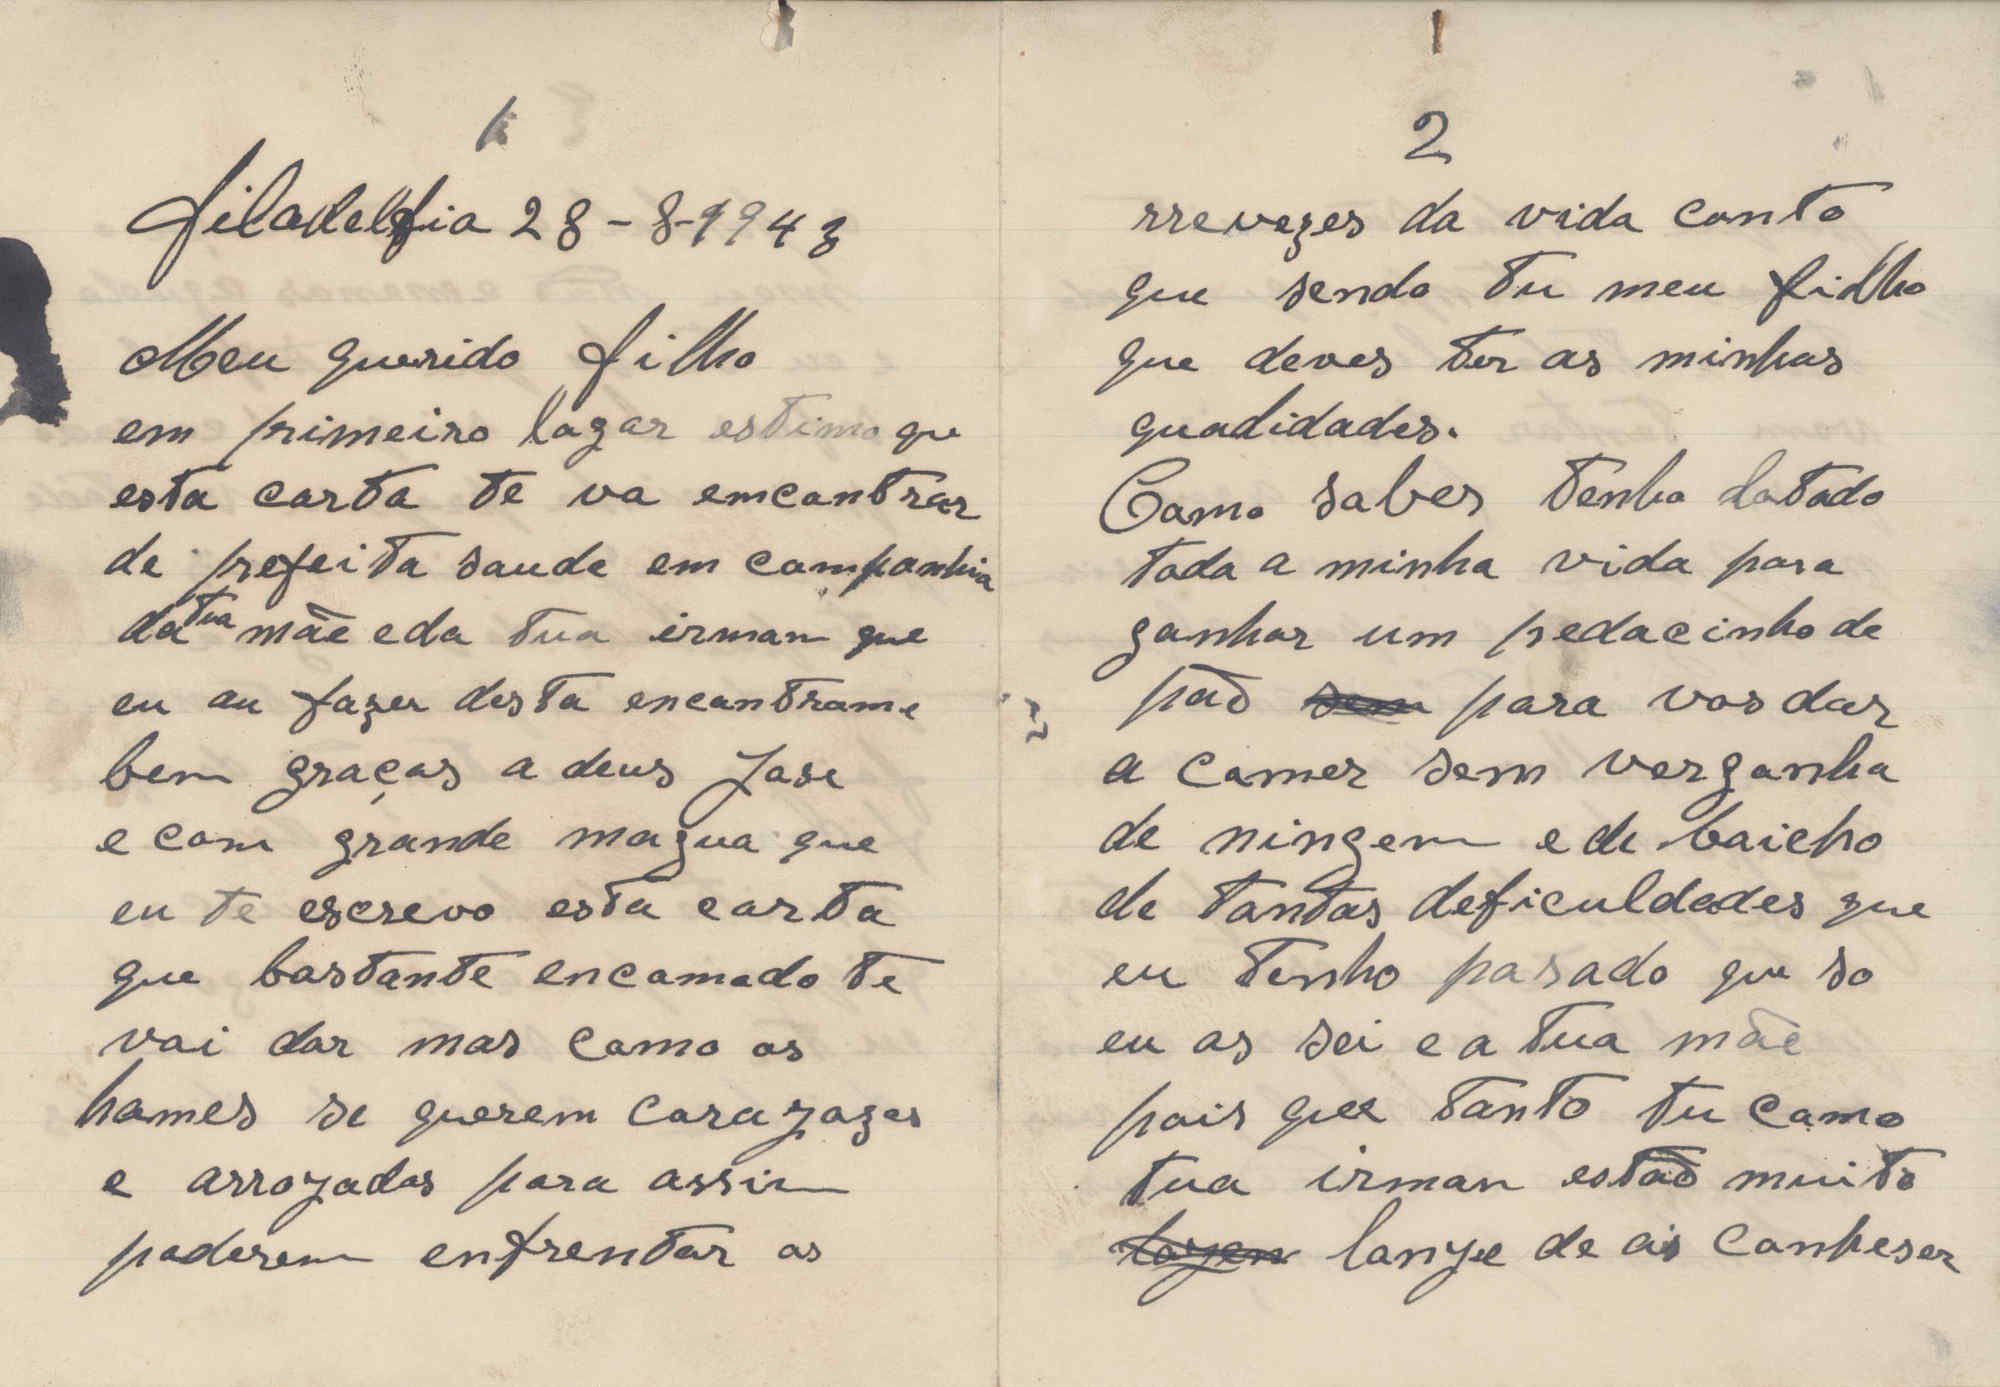 1
filadelfia 28-8-1943
Meu querido filho
em primeiro logar estimo que
esta carta te va emcontrar
de prefeita saude em companhia
da tua mãe e da tua irman que
eu au fazer desta encontrame
bem graças a deus Jose
e com grande magua que
eu te escrevo esta carta
que bastante encomodo te
vai dar mas como os
homes se querem corajozes
e arrojados para assim
poderem enfrentar os
2
rrevezes da vida conto
que sendo tu meu filho
que deves ter as minhas
qualidades.
Como sabes tenho lotado
toda a minha vida para
ganhar um pedacinho de
pão sem para vos dar
a comer sem vergonha
de ningem e de baicho
de tantas deficuldades que
eu tenho pasado que so
eu as sei e a tua mãe
pois que tanto tu como
tua irman estão muito
lonje de as conheser